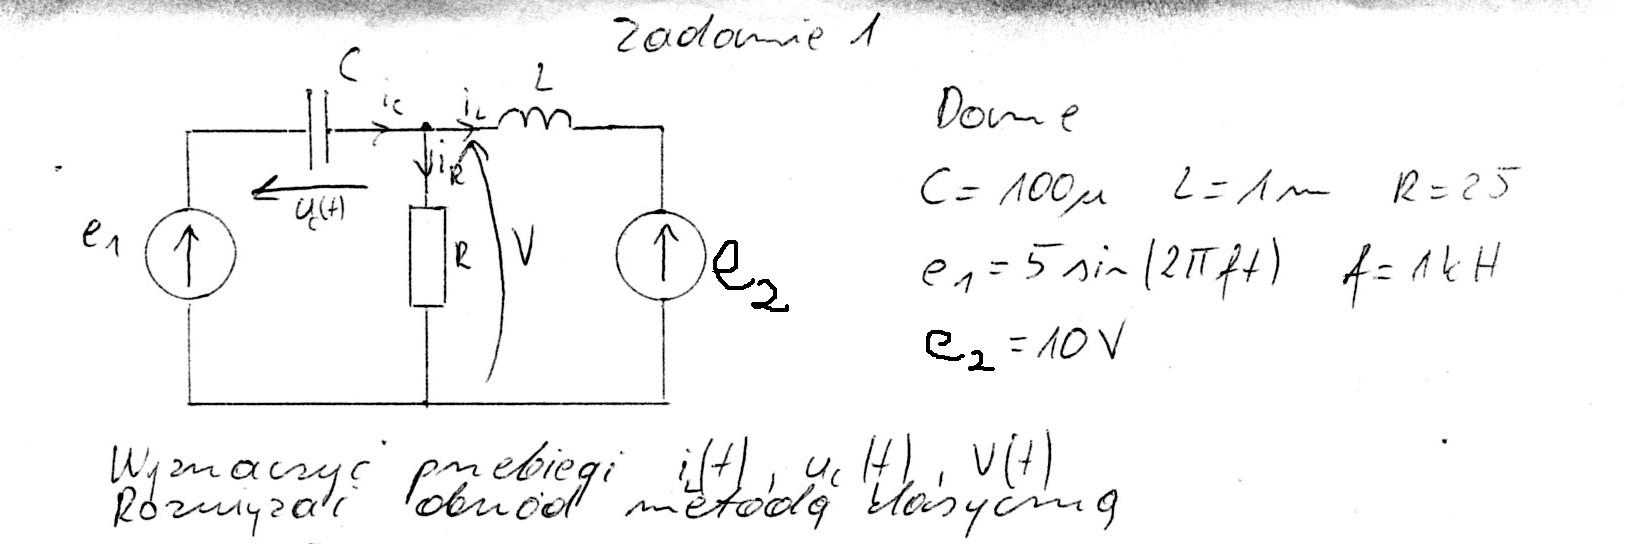 Zadanie 1
C
L
i_C
i_L
i_R
u_C(t)
e_1
R
V
e_2
Dane
C = 100μ L = 1m R = 25
e_1 = 5 sin(2πft) f = 1kH
e_2 = 10V
Wyznaczyć przebiegi i_L(t), u_C(t), V(t)
Rozwiązać obwód metodą klasyczną